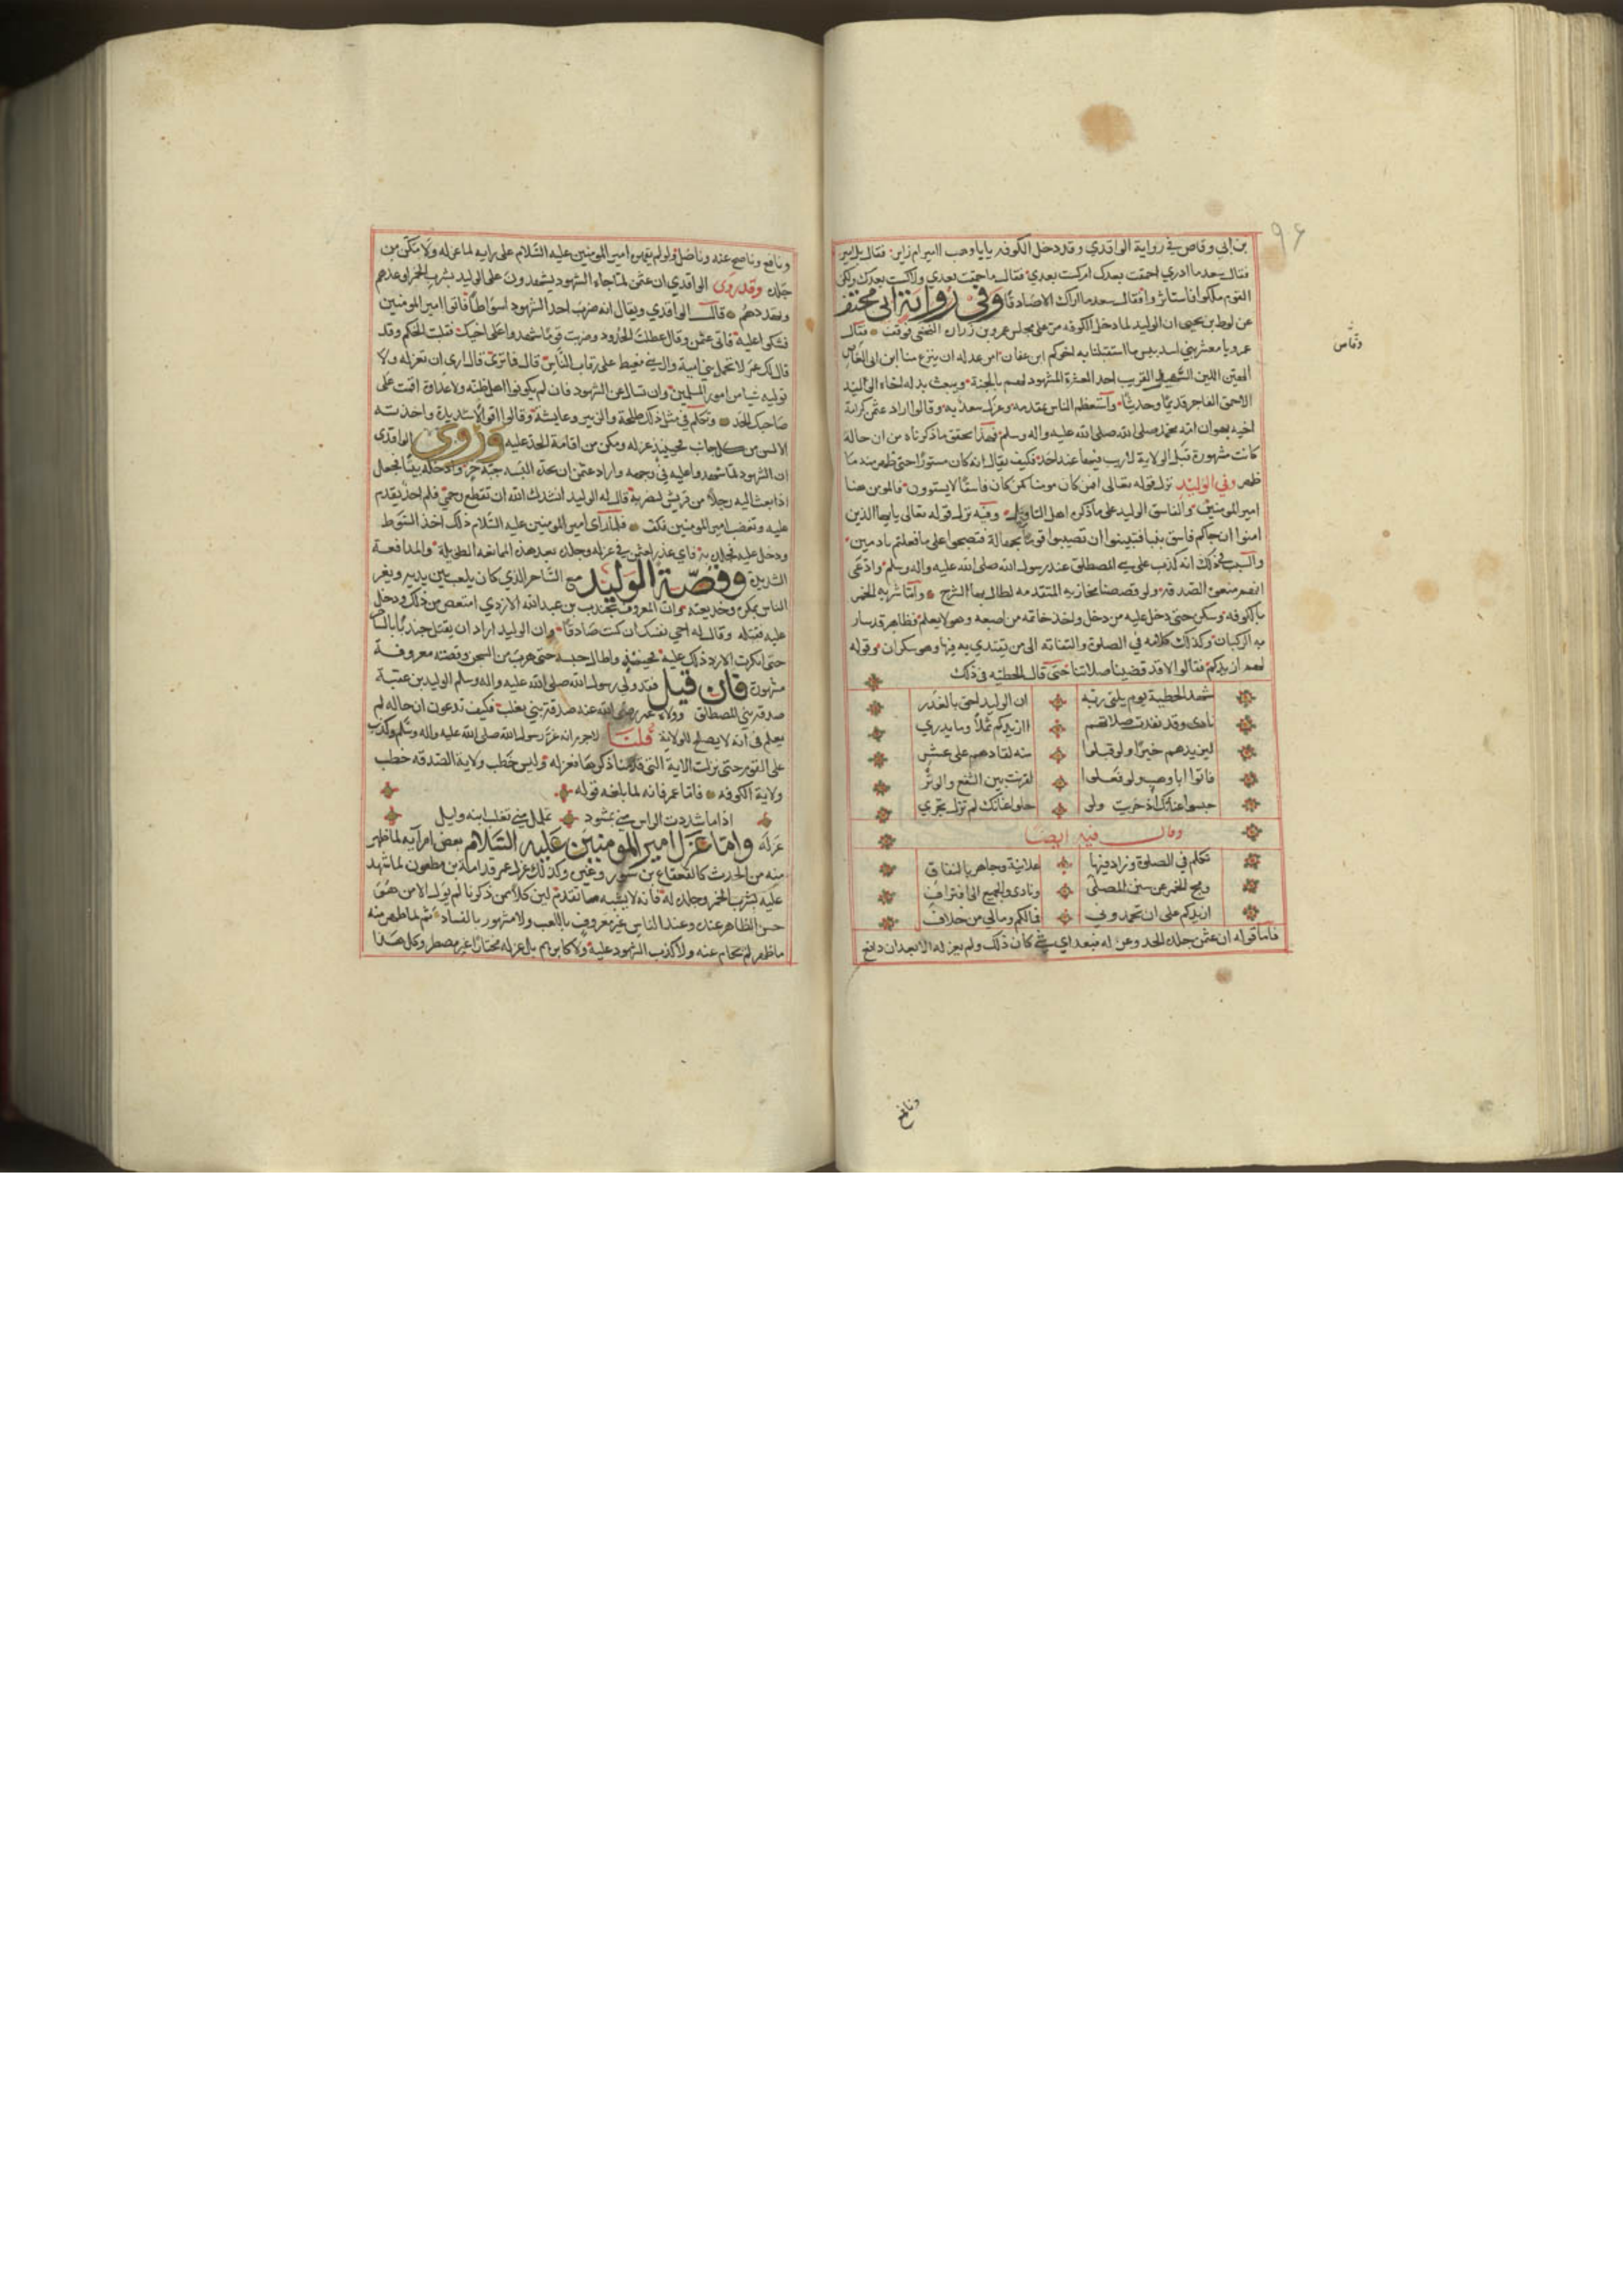 بن ابي وقاص في رواية الواقدي وقد دخل الكوفه يابا وهب اامير ام زاير فقال بل امير
فقال سعد ما ادري احمقت بعدك ام كست بعدي فقال ما حمقت بعدي ولا كست بعدك ولكن
القوم ملكوا فاستاثروا فقال سعد ما اراك الا صادقا وفي رواية ابي مخنف
عن لوط بن يحيى ان الوليد لما دخل الكوفه مر على مجلس عمرو بن زراره النخعي فوقف فقال
عمرو يا معشر بني اسد بيس ما استقبلنا به اخوكم ابن عفان امن عدله ان ينزع منا ابن ابي وقاص
الهين اللين السهل القريب احد العشرة المشهود لهم بالجنة ويبعث بدله اخاه الوليد
الاحمق الفاجر قديما وحديثا واستعظم الناس مقدمه وعزل سعد به وقالوا اراد عثمن كرامة
اخيه بهوان امة محمد صلى الله عليه واله وسلم فهذا تحقق ما ذكرناه من ان حاله
كانت مشهورة قبل الولاية لا ريب فيها عند احد فكيف يقال انه كان مستورا حتى ظهر منه ما
ظهر وفي الوليد نزل قوله تعالى افمن كان مومنا كمن كان فاسقا لا يستوون فالمومن هنا
امير المومنين والفاسق الوليد على ما ذكره اهل التاويل وفيه نزل قوله تعالى يايها الذين
امنوا ان جاكم فاسق بنبا فتبينوا ان تصيبوا قوما بجهالة فتصبحوا على ما فعلتم نادمين
والسبب في ذلك انه كذب على بني المصطلق عند رسول الله صلى الله عليه واله وسلم وادعى
انهم منعوه الصدقه ولو قصصنا مخازيه المتقدمه لطال بها الشرح واما شربه الخمر
بالكوفه وسكره حتى دخل عليه من دخل واخذ خاتمه من اصبعه وهو لا يعلم فظاهر قد سار
به الركبان وكذلك كلامه في الصلوة والتفاته الى من يقتدي به فيها وهو سكران وقوله
لهم ازيدكم فقالوا لا قد قضينا صلاتنا حتى قال الحطيئه في ذلك
شهد الحطيئة يوم يلقى ربه ان الوليد احق بالغدر
نادى وقد نفدت صلاتهم اازيدكم ثملا وما يدري
ليزيدهم خيرا ولو قبلوا منه لقادهم على عشر
فاتوا ابا وهب ولو فعلوا لقرنت بين الشفع والوتر
حبسوا عنانك اذ جريت ولو خلوا عنانك لم تزل تجري
وقال فيه ايضا
تكلم في الصلوة وزاد فيها علانية وجاهر بالنفاق
ومج الخمر عن سنن المصلى ونادى والجميع الى افتراق
ازيدكم على ان تحمدوني فما لكم وما لي من خلاق
فاما قوله ان عثمن جلده الحد وعزله فبعد اي شي كان ذلك ولم يعزله الا بعد ان دافع
وقاص
ودافع
ومانع وناصح عنه وناضل ولو لم يقهره امير المومنين عليه السلام على رايه لما عزله ولا مكن من
جلده وقد روى الواقدي ان عثمن لما جاءه الشهود يشهدون على الوليد بشرب الخمر اوعدهم
وتهددهم قال الواقدي ويقال انه ضرب احد الشهود اسواطا فاتوا امير المومنين
فشكوا عليه فاتى عثمن وقال عطلت الحدود وضربت قوما شهدوا على اخيك فقلبت الحكم وقد
قال لك عمر لا تحمل بني امية وال ابي معيط على رقاب الناس قال فما ترى قال ارى ان تعزله ولا
توليه شيا من امور المسلمين وان تسال عن الشهود فان لم يكونوا اهل ظنه ولا عداوة اقمت على
صاحبك الحد وتكلم في مثل ذلك طلحة والزبير وعايشة وقالوا اقوالا شديدة واخذته
الالسن من كل جانب فحينيذ عزله ومكن من اقامة الحد عليه وروى الواقدي
ان الشهود لما شهدوا عليه في وجهه واراد عثمن ان يحده البسه جبة خز وادخله بيتا فجعل
اذا بعث اليه رجلا من قريش ليضربه قال له الوليد انشدك الله ان تقطع رحمي فلم احد يقدم
عليه وتغضب امير المومنين فكف فلما راى امير المومنين عليه السلام ذلك اخذ السوط
ودخل عليه فجلده به فاي عذر لعثمن في عزله وجلده بعد هذه الممانعه الطويلة والمدافعة
الشديدة وقصة الوليد مع الساحر الذي كان يلعب بين يديه ويغر
الناس بمكره وخديعته وان المعروف بجندب بن عبد الله الازدي امتعض من ذلك ودخل
عليه فقتله وقال له احي نفسك ان كنت صادقا وان الوليد اراد ان يقتل جندبا بالساحر
حتى انكرت الازد ذلك عليه فحبسه واطال حبسه حتى هرب من السجن وقصته معروفة
مشهورة فان قيل فقد ولى رسول الله صلى الله عليه واله وسلم الوليد بن عقبة
صدقة بني المصطلق وولاه عمر رضي الله عنه صدقة بني تغلب فكيف تدعون ان حاله لم
يعلم في انه لا يصلح للولاية قلنا لا جرم انه غر رسول الله صلى الله عليه واله وسلم وكذب
على القوم حتى نزلت الاية التي قدمنا ذكرها فعزله وليس خطب ولاية الصدقه خطب
ولاية الكوفه فاما عمر فانه لما بلغه قوله
اذا ما شددت الراس مني بمشوذ فويلك مني تغلب ابنة وايل
عزله واما عزل امير المومنين عليه السلام بعض امرآيه لما ظهر
منه من الحدث كالقعقاع بن شور وغيره وكذلك عزل عمر قدامة بن مظعون لما شهد
عليه بشرب الخمر وجلده له فانه لا يشبه ما تقدم لان كلا ممن ذكرنا لم يول الا من هو
حسن الظاهر عنده وعند الناس غير معروف باللعب ولا مشهور بالفساد ثم لما ظهر منه
ما ظهر لم يحام عنه ولا كذب الشهود عليه ولا كابرهم بل عزله مختارا غير مضطر وكل هذا